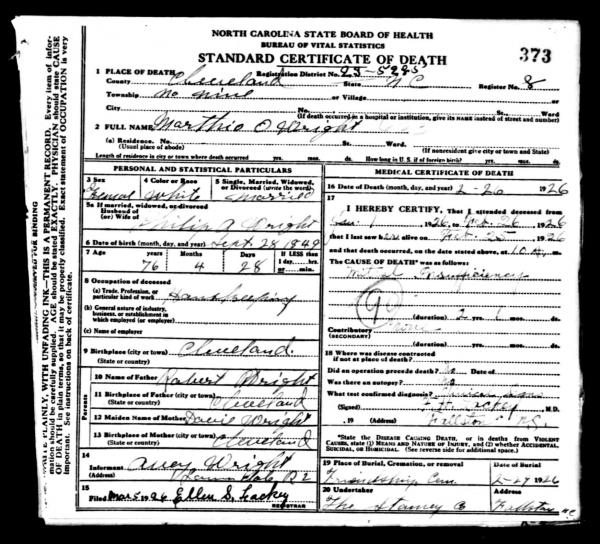 NORTH CAROLINA STATE BOARD OF HEALTH
BUREAU OF VITAL STATISTICS
STANDARD CERTIFICATE OF DEATH
373
1 PLACE OF DEATH Registration District No. 23-5285
County Cleveland State N C Register No. 8
Township No nine or Village
City No. St. Ward
(If death occurred in a hospital or institution, give its NAME instead of street and number)
2 FULL NAME Marthie O Wright
(a) Residence. No. St. Ward
(Usual place of abode) (If nonresident give city or town and State)
Length of residence in city or town where death occurred yrs. mos. ds. How long in U. S. if of foreign birth? yrs. mos. ds.
PERSONAL AND STATISTICAL PARTICULARS
3 Sex 4 Color or Race 5 Single, Married, Widowed, or Divorced (write the word)
Femal White married
5a If married, widowed, or divorced
Husband of
(or) Wife of Philip A Wright
6 Date of birth (month, day, and year) Sept 28 1849
7 Age years Months Days If LESS than
76 4 28
8 Occupation of deceased
(a) Trade, Profession, or
particular kind of work
(b) General nature of industry,
business, or establishment in
which employed (or employer)
(c) Name of employer
9 Birthplace (city or town) Cleveland
(State or country)
Parents
10 Name of Father Robert Wright
11 Birthplace of Father (city or town) Cleveland
(State or country)
12 Maiden Name of Mother Wright
13 Birthplace of Mother (city or town) Cleveland
(State or country)
14
Informant Wright
(Address) R2
15
Filed Mar 5 1926 Ellen S. Lackey
REGISTRAR
MEDICAL CERTIFICATE OF DEATH
16 Date of Death (month, day, and year) 2-26 1926
17
I HEREBY CERTIFY, That I attended deceased from
1 1926, to 26 1926
that I last saw alive on Feb 25 1926
and that death occurred, on the date stated above, at 10 m.
The CAUSE OF DEATH* was as follows:
Mitral Insufficiency
90
(duration) 2 yrs. mos. ds.
Contributory
(SECONDARY)
(duration) yrs. mos. ds.
18 Where was disease contracted
if not at place of death?
Did an operation precede death? no
Was there an autopsy? no
What test confirmed diagnosis?
(Signed) Lackey M.D.
, 19 (Address) Fallston N.C.
*State the DISEASE CAUSING DEATH, or in deaths from VIOLENT
CAUSES, state (1) MEANS AND NATURE OF INJURY, and (2) whether ACCIDENTAL,
SUICIDAL, or HOMICIDAL. (See reverse side for additional space.)
19 Place of Burial, Cremation, or removal Date of Burial
Friendship Cem. 2-27 1926
20 Undertaker Address
The Stamey Co Fallston NC
WRITE PLAINLY, WITH UNFADING INK—THIS IS A PERMANENT RECORD. Every item of information should be carefully supplied. AGE should be stated EXACTLY. PHYSICIAN should state CAUSE OF DEATH in plain terms, so that it may be properly classified. Exact statement of OCCUPATION is very important. See instructions on back of certificate.
RESERVED FOR BINDING